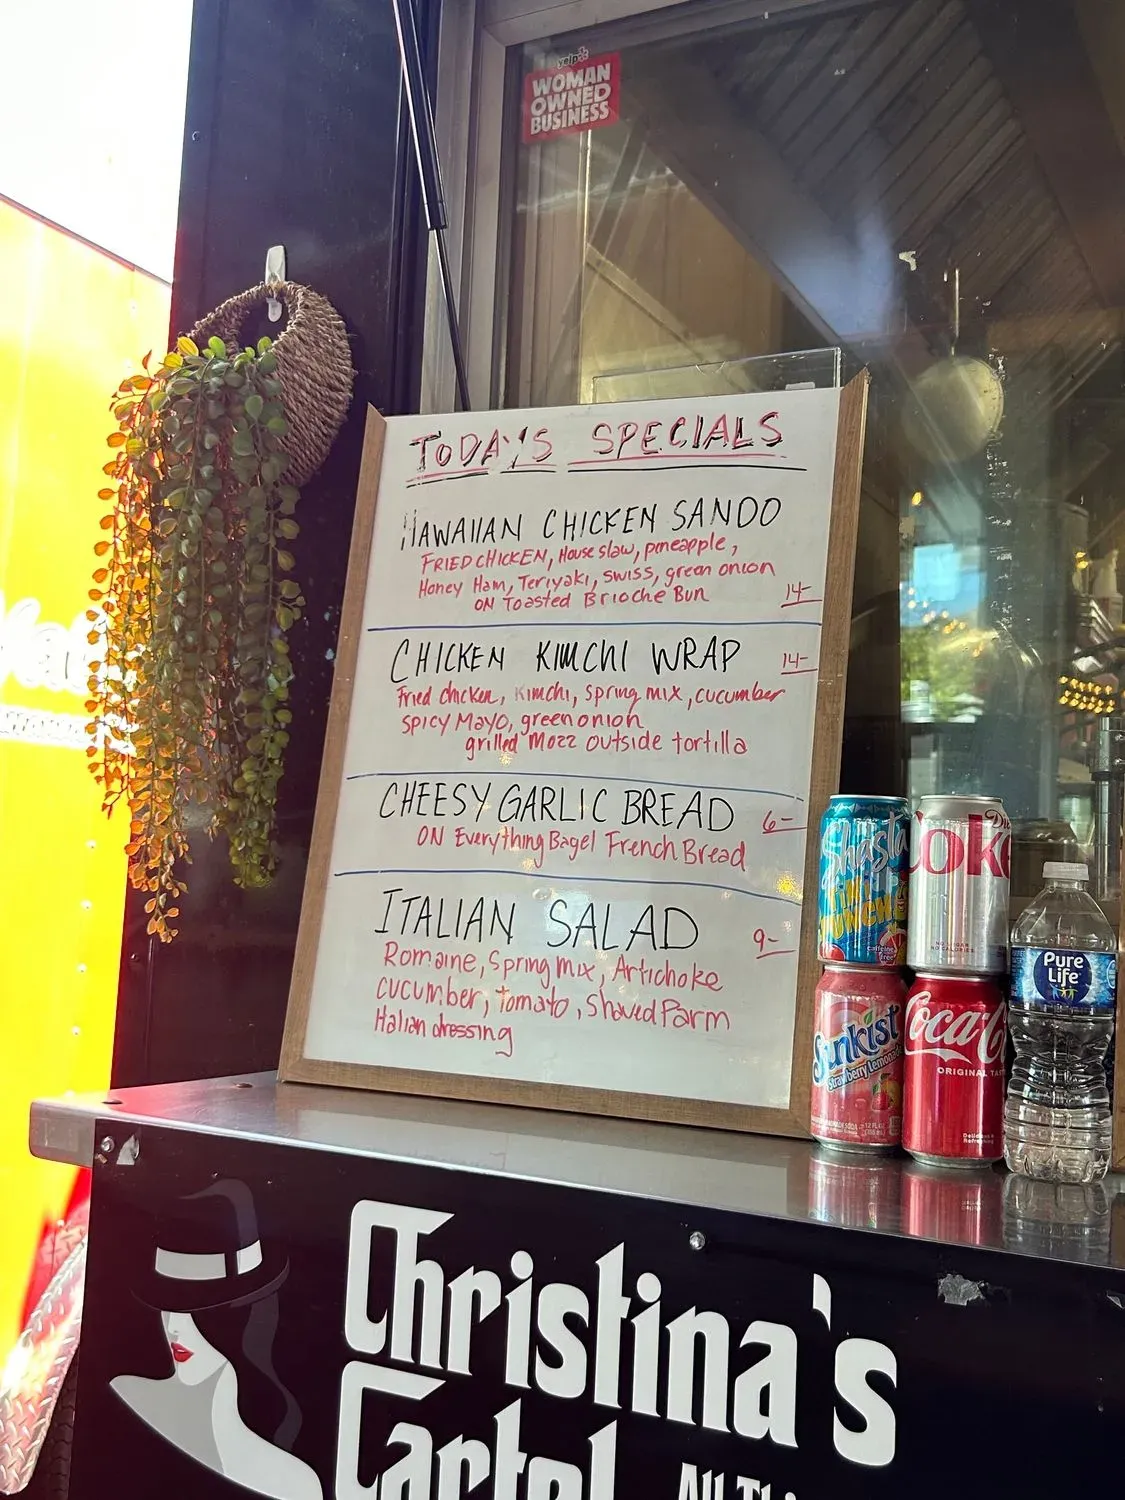 yelp
WOMAN
OWNED
BUSINESS
TODAY'S SPECIALS
HAWAIIAN CHICKEN SANDO
FRIED CHICKEN, House slaw, pineapple,
Honey Ham, Teriyaki, swiss, green onion
ON Toasted Brioche Bun 14-
CHICKEN KIMCHI WRAP 14-
Fried chicken, Kimchi, spring mix, cucumber
spicy Mayo, green onion
grilled Mozz outside tortilla
CHEESY GARLIC BREAD 6-
ON Everything Bagel French Bread
ITALIAN SALAD 9-
Romaine, Spring mix, Artichoke
cucumber, tomato, Shaved Parm
Italian dressing
Shasta
TIKI
PUNCH
caffeine
free
Diet
Coke
NO SUGAR
NO CALORIES
Pure
Life
Sunkist
Strawberry Lemonade
12 FL
Coca-C
ORIGINAL TAST
Delicious &
Refreshing
Christina's
Cartel
All Thi